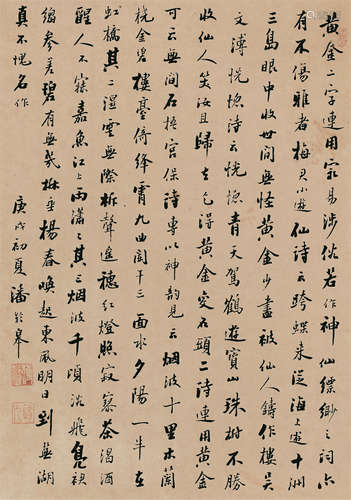 黃金二字連用最易涉俗若作神仙縹緲之詞
有不傷雅者梅小遊仙詩云跨蝶來泛海上遊十洲
三島眼中收世間無怪黃金少盡被仙人鑄作樓吳
文溥恍惚詩云恍惚青天駕鶴遊寶山珠樹不勝
收仙人笑汝且歸去乞得黃金空石頭二詩連用黃金
可云無間石梧宮保詩專以神韻見云烟波十里水
金碧樓臺倚絳霄九曲闌干三面水夕陽一半在
虹橋其二湿雲無際柝聲遙穗紅燈照寂寥茶渴酒
醒人不寐嘉魚江上雨瀟瀟其三烟波千頃
參差碧有無幾樹垂楊春喚起東風明日到蕪湖
真不愧名作
庚戌初夏潘齡皋